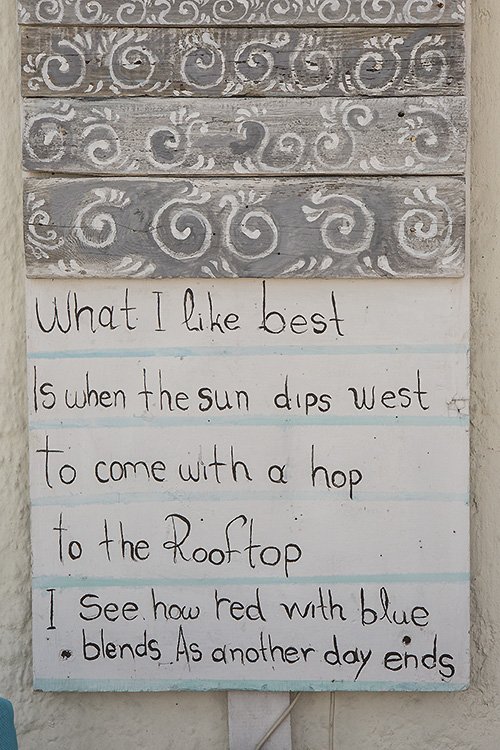 What I like best
Is when the sun dips west
to come with a hop
to the Rooftop
I see how red with blue
blends As another day ends